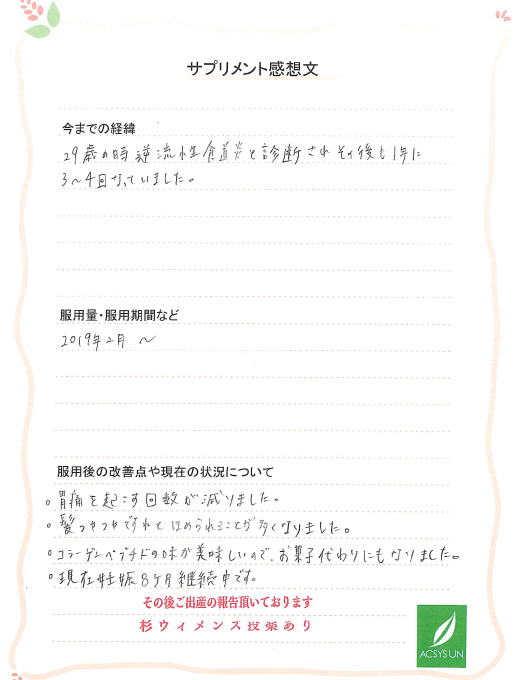 サプリメント感想文
今までの経緯
29歳の時 逆流性食道炎と診断されその後も1年に
3〜4回なっていました。
服用量・服用期間など
2019年2月 〜
服用後の改善点や現在の状況について
。胃痛を起こす回数が減りました。
。髪つやつやですねとほめられることが多くなりました。
。コラーゲンペプチドの味が美味しいので、お菓子代わりにもなりました。
。現在妊娠8ヶ月継続中です。
その後ご出産の報告頂いております
杉ウィメンズ授業あり
ACSYSUN